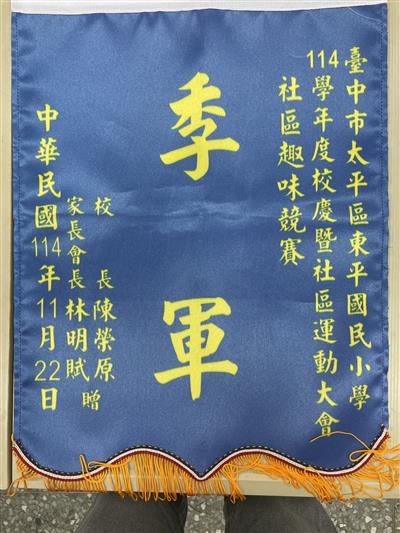 臺中市太平區東平國民小學
114學年度校慶暨社區運動大會
社區趣味競賽
季軍
校長陳榮原
家長會長林明賦贈
中華民國114年11月22日